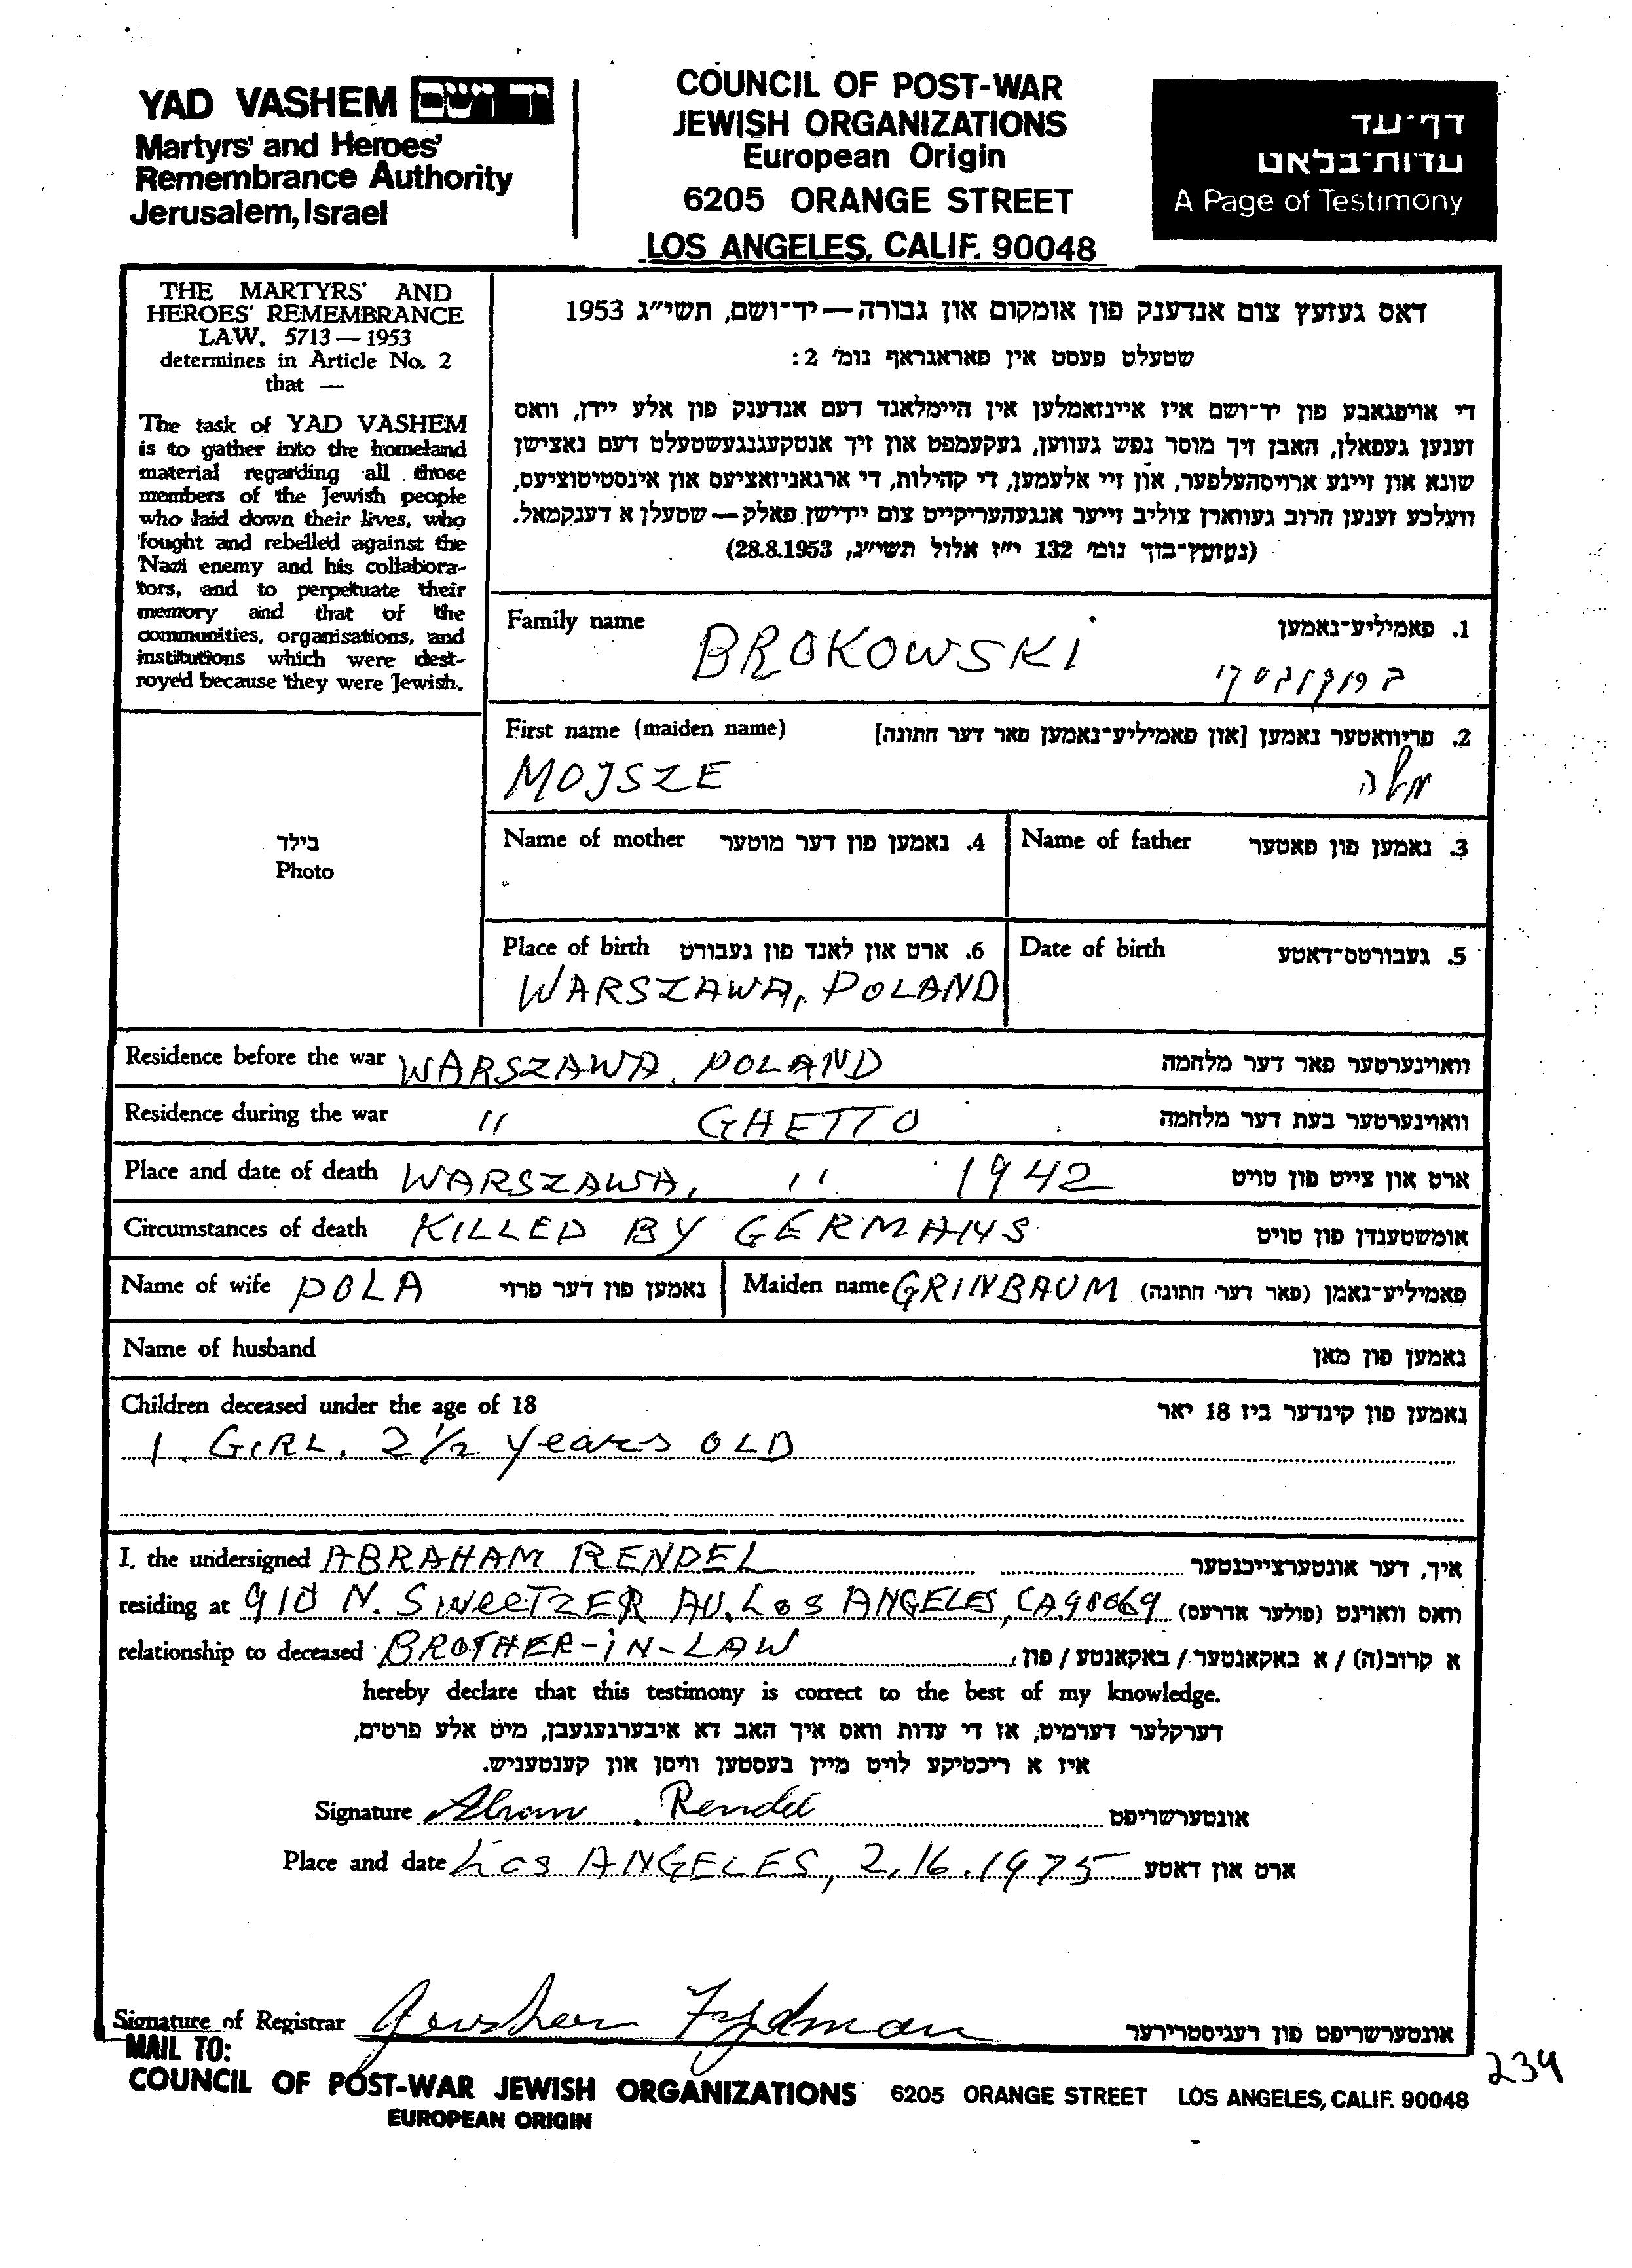 YAD VASHEM יד ושם
Martyrs' and Heroes'
Remembrance Authority
Jerusalem, Israel
COUNCIL OF POST-WAR
JEWISH ORGANIZATIONS
European Origin
6205 ORANGE STREET
LOS ANGELES, CALIF. 90048
דף-עד
עדות-בלאט
A Page of Testimony
THE MARTYRS' AND
HEROES' REMEMBRANCE
LAW, 5713 — 1953
determines in Article No. 2
that —
The task of YAD VASHEM
is to gather into the homeland
material regarding all those
members of the Jewish people
who laid down their lives, who
fought and rebelled against the
Nazi enemy and his collabora-
tors, and to perpetuate their
memory and that of the
communities, organisations, and
institutions which were dest-
royed because they were Jewish.
דאס געזעץ צום אנדענק פון אומקום און גבורה — יד-ושם, תשי"ג 1953
שטעלט פעסט אין פאראגראף נומ' 2:
די אויפגאבע פון יד-ושם איז איינזאמלען אין היימלאנד דעם אנדענק פון אלע יידן, וואס
זענען געפאלן, האבן זיך מוסר נפש געווען, געקעמפט און זיך אנטקעגנגעשטעלט דעם נאצישן
שונא און זיינע ארויסהעלפער, און זיי אלעמען, די קהילות, די ארגאניזאציעס און אינסטיטוציעס,
וועלכע זענען חרוב געווארן צוליב זייער אנגעהעריקייט צום יידישן פאלק — שטעלן א דענקמאל.
(געזעץ-בוך נומ' 132 י"ז אלול תשי"ג, 28.8.1953)
Family name 1. פאמיליע-נאמען
BROKOWSKI ברוקובסקי
First name (maiden name) 2. פריוואטער נאמען [און פאמיליע-נאמען פאר דער חתונה]
MOJSZE משה
בילד
Photo
Name of mother 4. נאמען פון דער מוטער
Name of father 3. נאמען פון פאטער
Place of birth 6. ארט און לאנד פון געבורט
WARSZAWA, POLAND
Date of birth 5. געבורטס-דאטע
Residence before the war WARSZAWA, POLAND וואוינערטער פאר דער מלחמה
Residence during the war " GHETTO וואוינערטער בעת דער מלחמה
Place and date of death WARSZAWA, " 1942 ארט און צייט פון טויט
Circumstances of death KILLED BY GERMANS אומשטענדן פון טויט
Name of wife POLA נאמען פון דער פרוי
Maiden name GRINBAUM פאמיליע-נאמן (פאר דער חתונה)
Name of husband נאמען פון מאן
Children deceased under the age of 18 נאמען פון קינדער ביז 18 יאר
1 GIRL. 2 1/2 years OLD
I, the undersigned ABRAHAM RENDEL איך, דער אונטערצייכנטער
residing at 910 N. SWEETZER AV, LOS ANGELES, CA 90069 וואס וואוינט (פולער אדרעס)
relationship to deceased BROTHER-IN-LAW א קרוב(ה) / א באקאנטער / באקאנטע / פון,
hereby declare that this testimony is correct to the best of my knowledge.
דערקלער דערמיט, אז די עדות וואס איך האב דא איבערגעגעבן, מיט אלע פרטים,
איז א ריכטיקע לויט מיין בעסטען וויסן און קענטעניש.
Signature Abram Rendel אונטערשריפט
Place and date LOS ANGELES, 2.16.1975 ארט און דאטע
Signature of Registrar אונטערשריפט פון רעגיסטרירער
MAIL TO:
COUNCIL OF POST-WAR JEWISH ORGANIZATIONS 6205 ORANGE STREET LOS ANGELES, CALIF. 90048
EUROPEAN ORIGIN
234